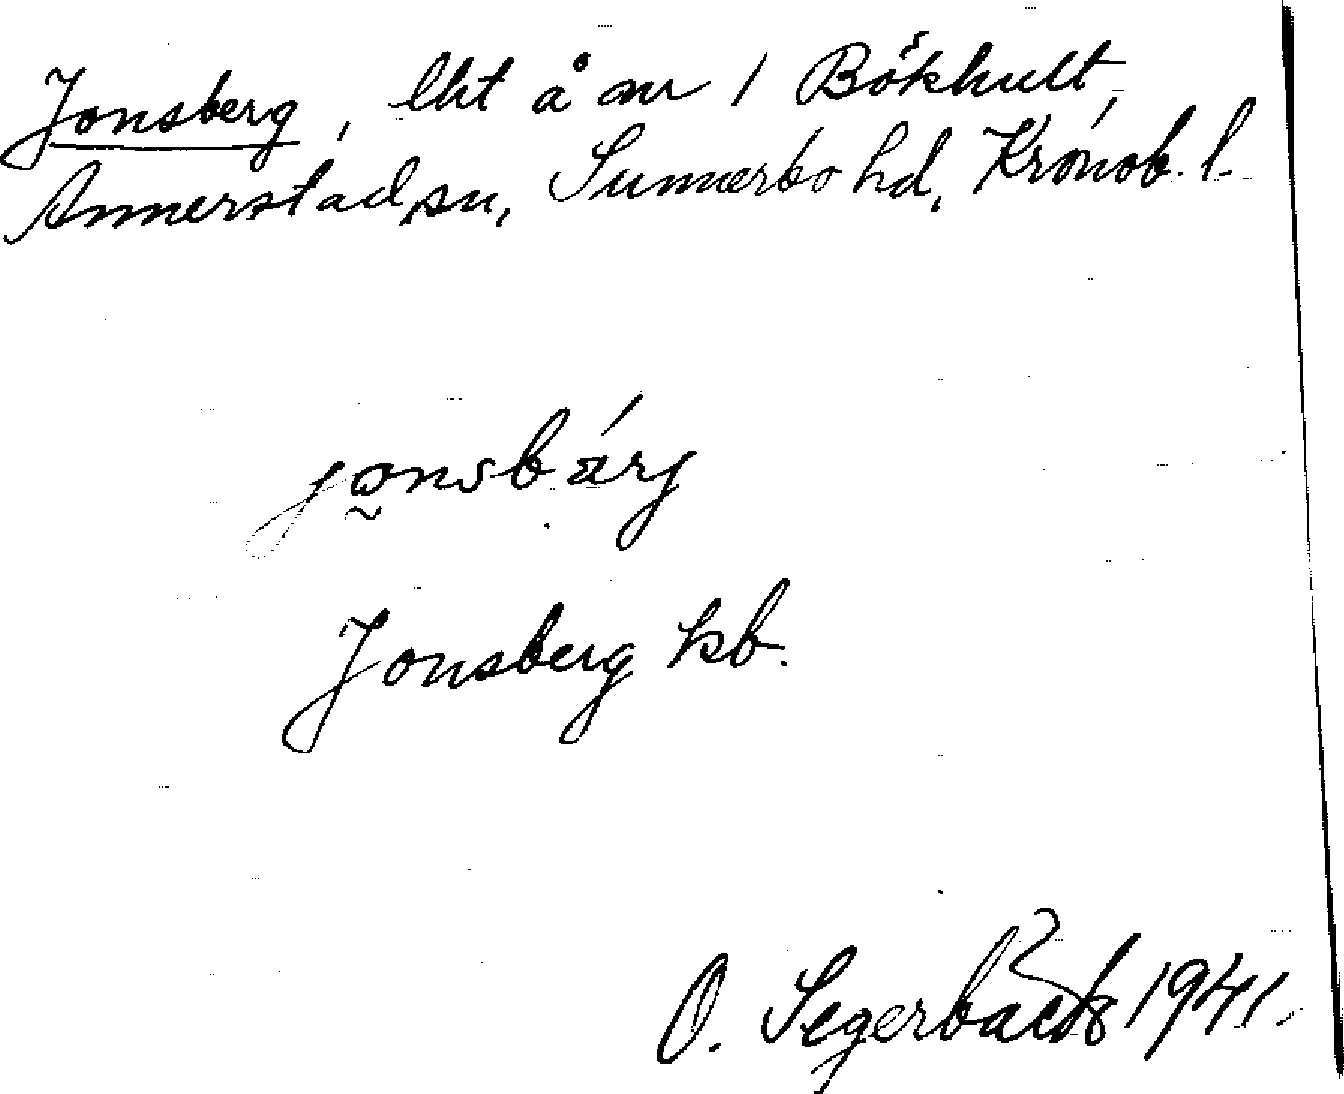 Jonsberg, lht å nr 1 Bökhult,
Annerstad sn, Sunnerbo hd, Kronob. l.
jonsbärj
Jonsberg kb.
O. Segerbäck 1941.